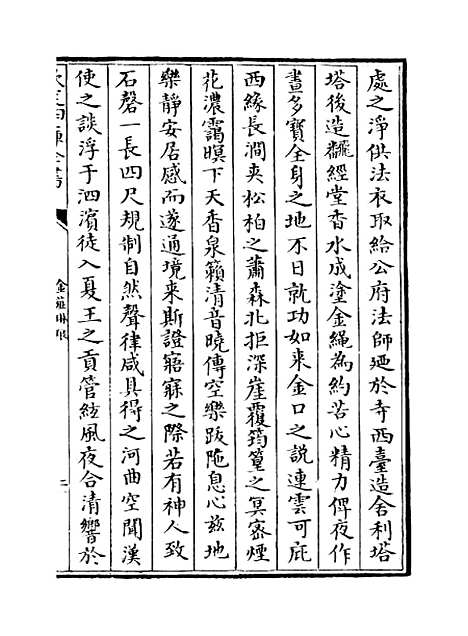 處之淨供法衣取給公府法師廼於寺西臺造舍利塔
塔後造飜經堂香水成塗金繩為約苦心精力俾夜作
晝多寶全身之地不日就功如来金口之說連雲可庇
西緣長澗夾松柏之蕭森北拒深崖覆筠篁之冥密煙
花濃靄暝下天香泉籟清音曉傳空樂跋陁息心兹地
樂靜安居感而遂通境来斯證寤寐之際若有神人致
石磬一長四尺規制自然聲律咸具得之河曲空聞漢
使之談浮于泗濱徒入夏王之貢管絃風夜合清響於
金薤琳琅